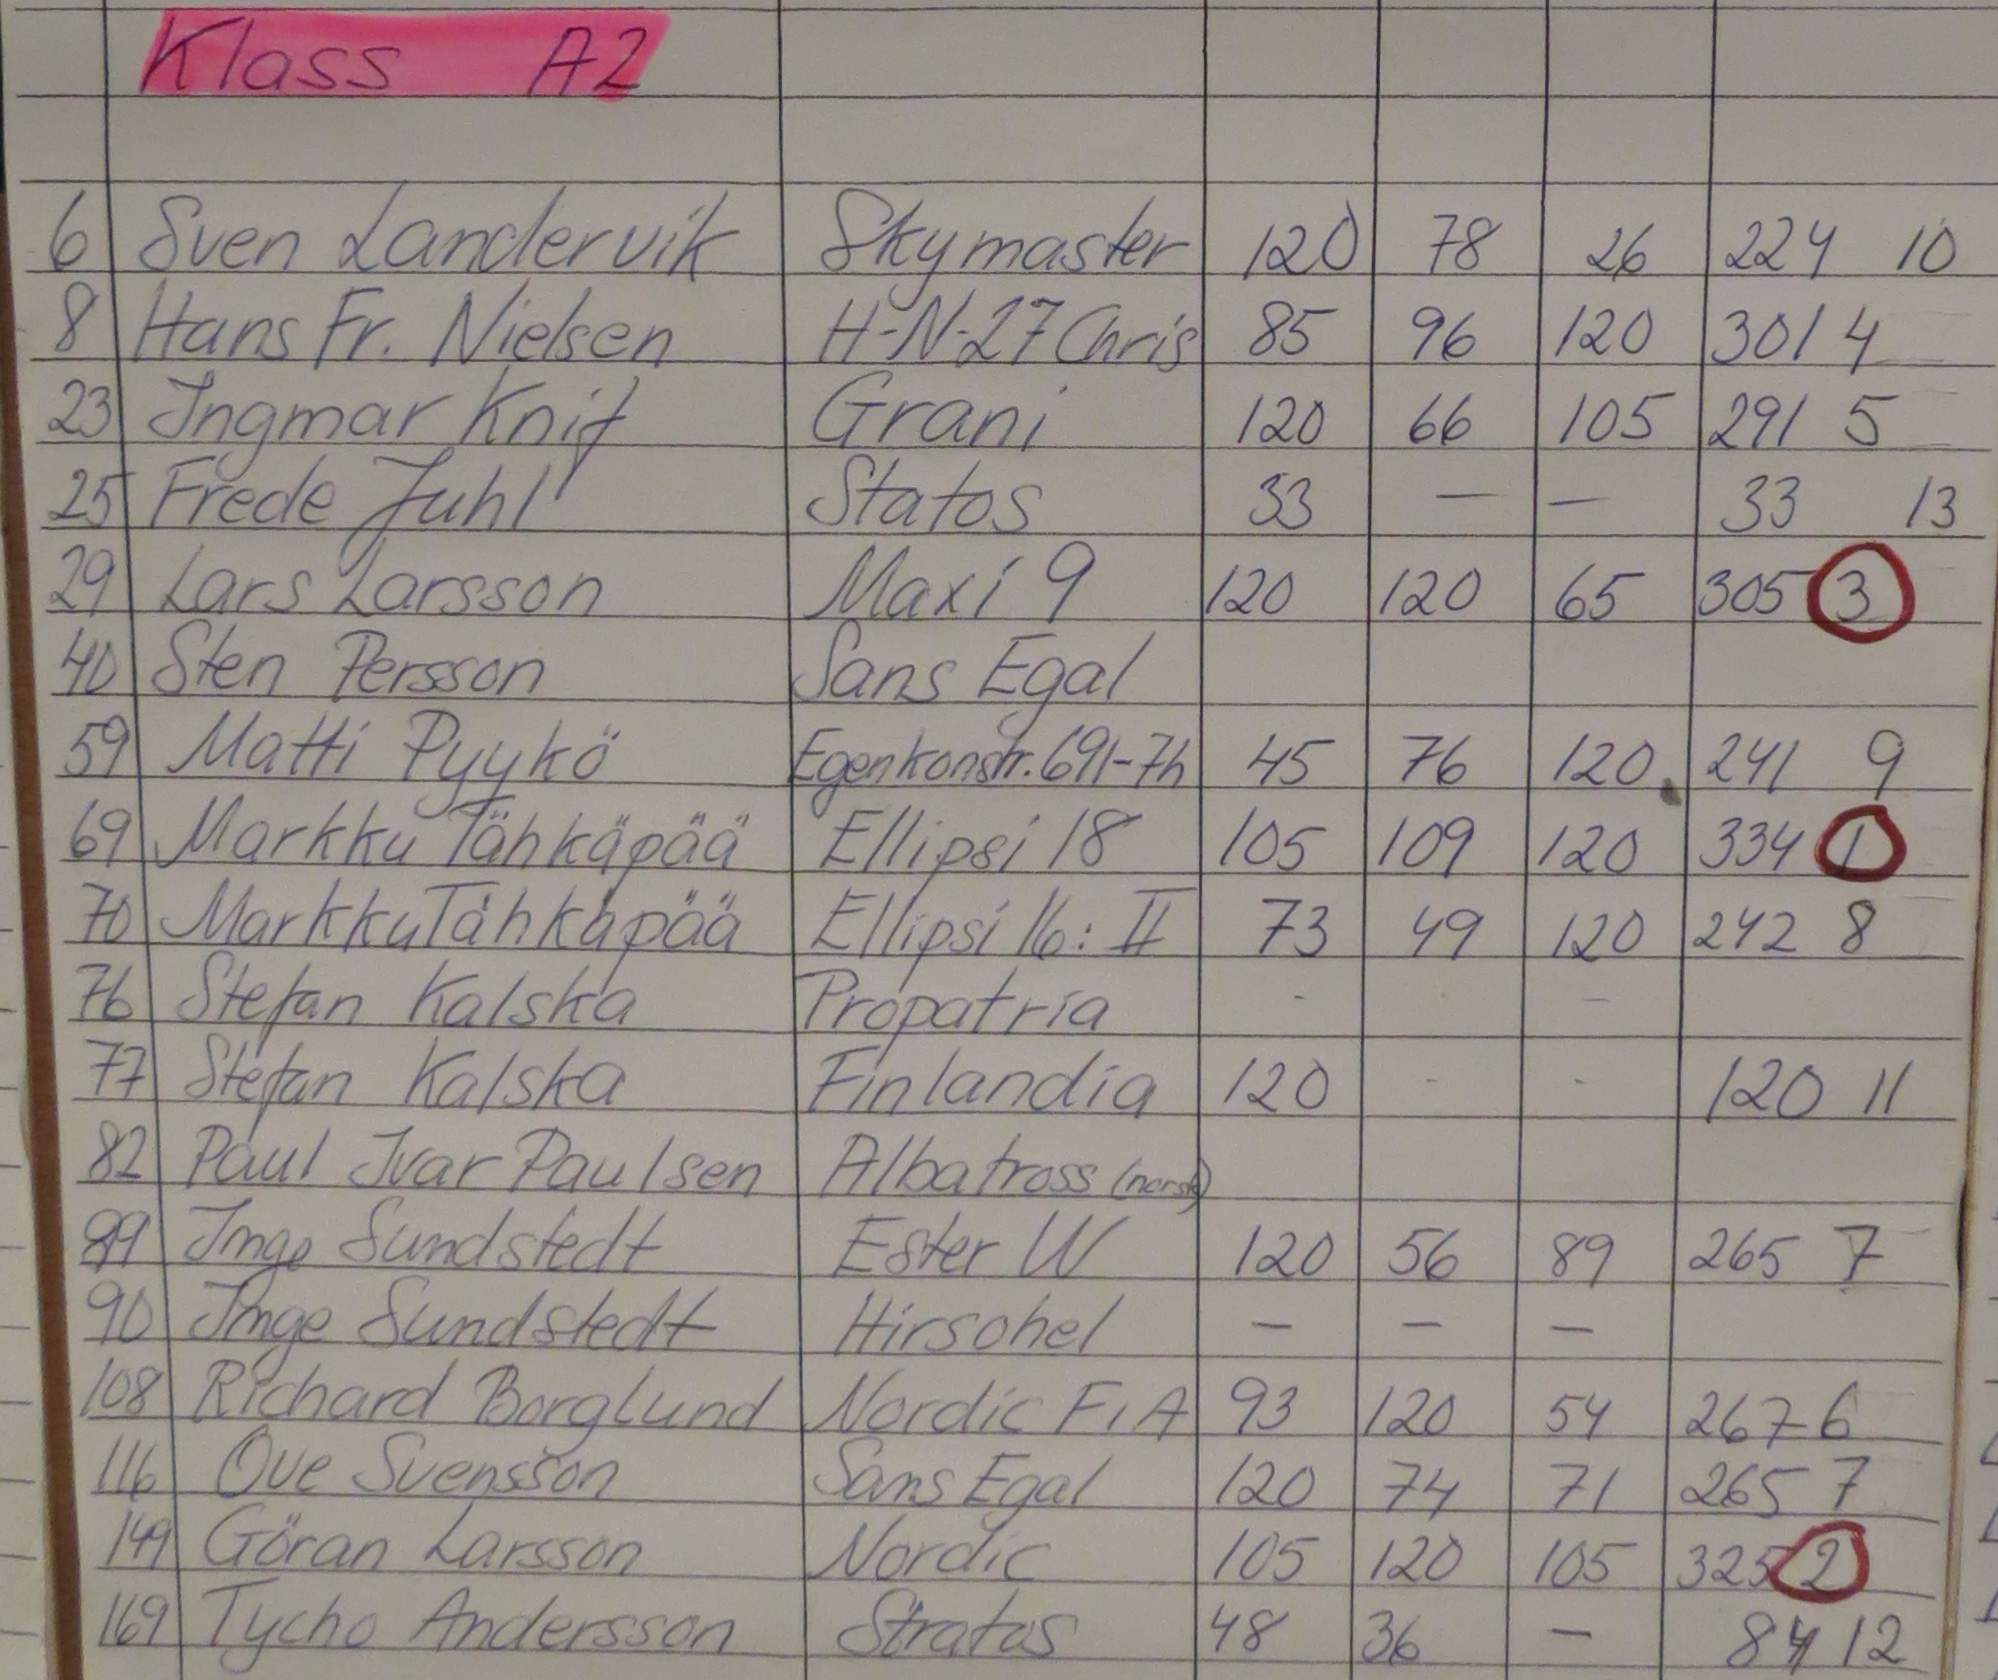 Klass A2
6 Sven Landervik Skymaster 120 78 26 224 10
8 Hans Fr. Nielsen H-N-27 Chris 85 96 120 301 4
23 Ingmar Knif Grani 120 66 105 291 5
25 Frede Juhl Statos 33 — — 33 13
29 Lars Larsson Maxi 9 120 120 65 305 3
40 Sten Persson Sans Egal
59 Matti Pyykö Egenkonstr. 691-7h 45 76 120 241 9
69 Markku Tähkäpää Ellipsi 18 105 109 120 334 1
70 Markku Tähkäpää Ellipsi 16: II 73 49 120 242 8
76 Stefan Kalska Propatria - - -
77 Stefan Kalska Finlandia 120 - - 120 11
82 Paul Ivar Paulsen Albatross (norsk)
89 Inge Sundstedt Ester W 120 56 89 265 7
90 Inge Sundstedt Hirschel — — —
108 Richard Borglund Nordic F1A 93 120 54 267 6
116 Ove Svensson Sans Egal 120 74 71 265 7
149 Göran Larsson Nordic 105 120 105 325 2
169 Tycho Andersson Stratos 48 36 — 84 12